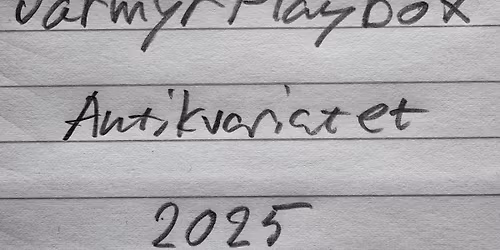 Playbox
Antikvariatet
2025